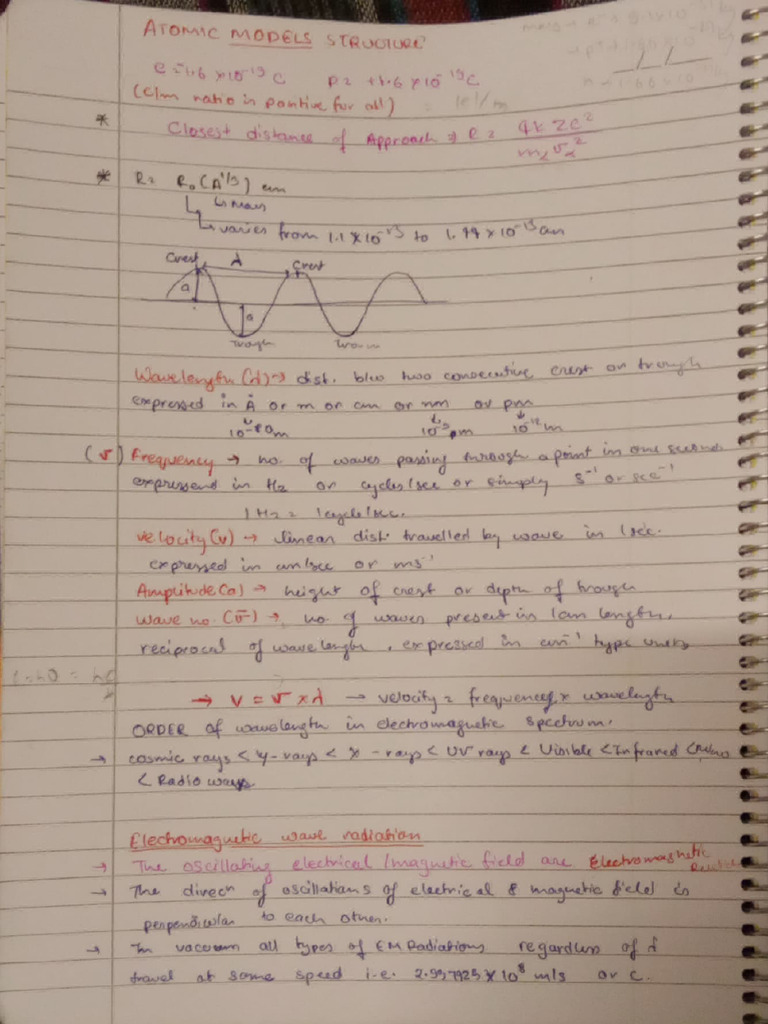 ATOMIC MODELS STRUCTURE
e = -1.6 × 10⁻¹⁹ C P = +1.6 × 10⁻¹⁹ C
(e/m ratio is positive for all) = |e|/m
* Closest distance of Approach → R = 4K Ze² / mα vα²
* R = R₀ (A^1/3) cm
↳ Mass
↳ varies from 1.1 × 10⁻¹³ to 1.44 × 10⁻¹³ cm
Crest λ Crest
a a
Trough
Wavelength (λ) → dist. b/w two consecutive crest or trough
expressed in Å or m or cm or nm or pm
10⁻¹⁰m 10⁻⁹m 10⁻¹²m
(ν) Frequency → no. of waves passing through a point in one second
expressend in Hz or cycles/sec or simply s⁻¹ or sec⁻¹
1 Hz = 1 cycle/sec.
velocity (v) → linear dist. travelled by wave in 1 sec.
expressed in cm/sec or ms⁻¹
Amplitude (a) → height of crest or depth of trough
Wave no. (ν̅) → no. of waves present in 1cm length,
reciprocal of wavelength, expressed in cm⁻¹ type units
→ V = ν × λ → velocity = frequency × wavelength
ORDER of wavelength in electromagnetic spectrum.
→ cosmic rays < γ-rays < X-rays < UV rays < Visible < Infrared <
< Radio ways
Electromagnetic wave radiation
→ The oscillating electrical/magnetic field are Electromagnetic
→ The direcn of oscillations of electrical & magnetic field is
perpendicular to each other.
→ In vacuum all types of EM Radiations regardless of λ
travel at same speed i.e. 2.997925 × 10⁸ m/s or c.